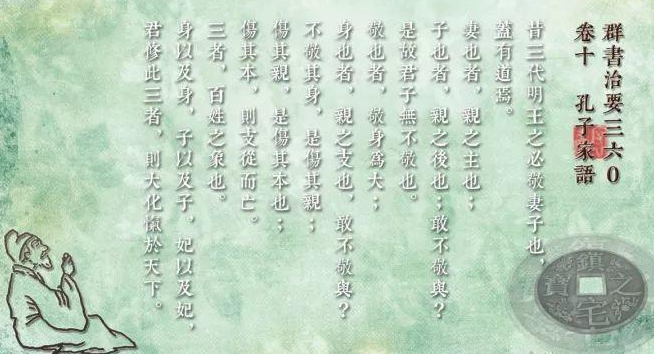 群書治要三六0
卷十 孔子家語
昔三代明王之必敬妻子也，
蓋有道焉。
妻也者，親之主也；
子也者，親之後也；敢不敬與？
是故君子無不敬也。
敬也者，敬身為大；
身也者，親之支也，敢不敬與？
不敬其身，是傷其親；
傷其親，是傷其本也；
傷其本，則支從而亡。
三者，百姓之象也。
身以及身，子以及子，妃以及妃，
君修此三者，則大化愾於天下。
鎮宅之寶